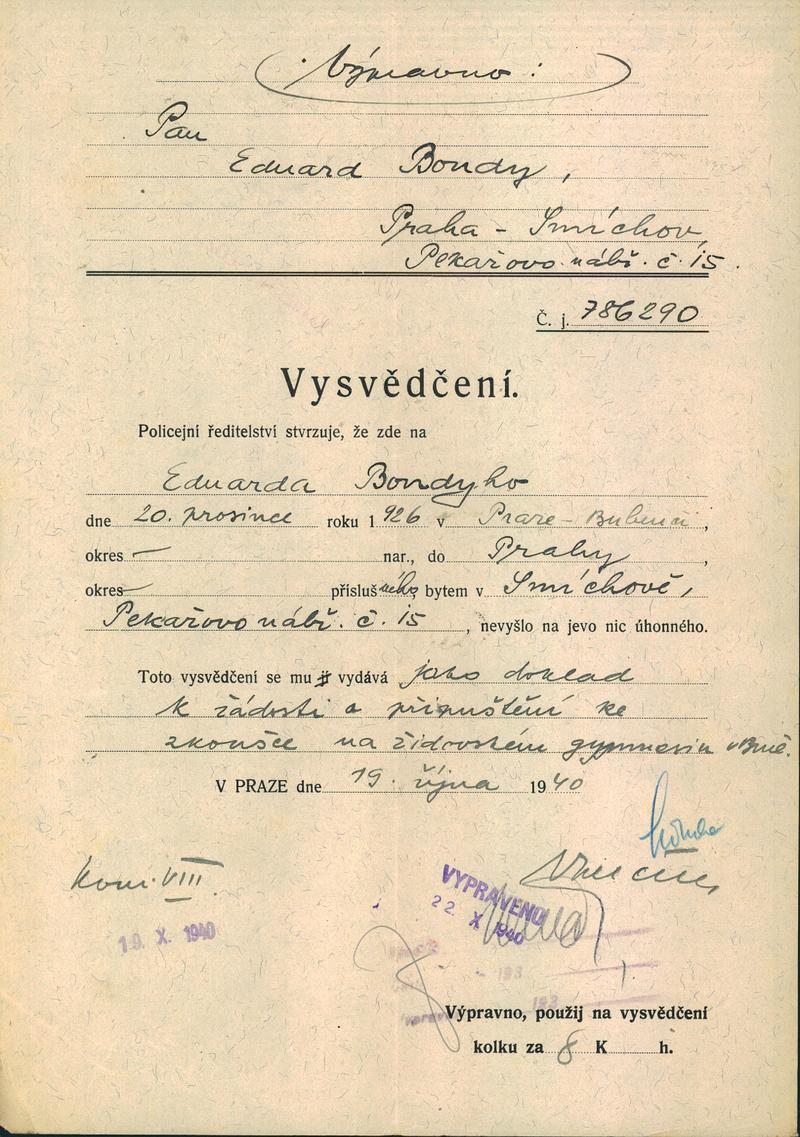 Výpravno :
Pan
Eduard Bondy,
Praha - Smíchov,
Pekařovo nábř. č. 15.
Č. j. 786290
Vysvědčení.
Policejní ředitelství stvrzuje, že zde na
Eduarda Bondyho
dne 20. prosince roku 1926 v Praze - Bubenči,
okres — nar., do Prahy,
okres — příslušného, bytem v Smíchově,
Pekařovo nábř. č. 15, nevyšlo na jevo nic úhonného.
Toto vysvědčení se mu jí vydává jako doklad
k žádosti o připuštění ke
zkoušce na židovském gymnasiu v Brně.
V PRAZE dne 19. října 1940
Kom. VIII.
VYPRAVENO
22. X. 1940
19. X. 1940
- 193
193
Výpravno, použij na vysvědčení
kolku za 8 K h.